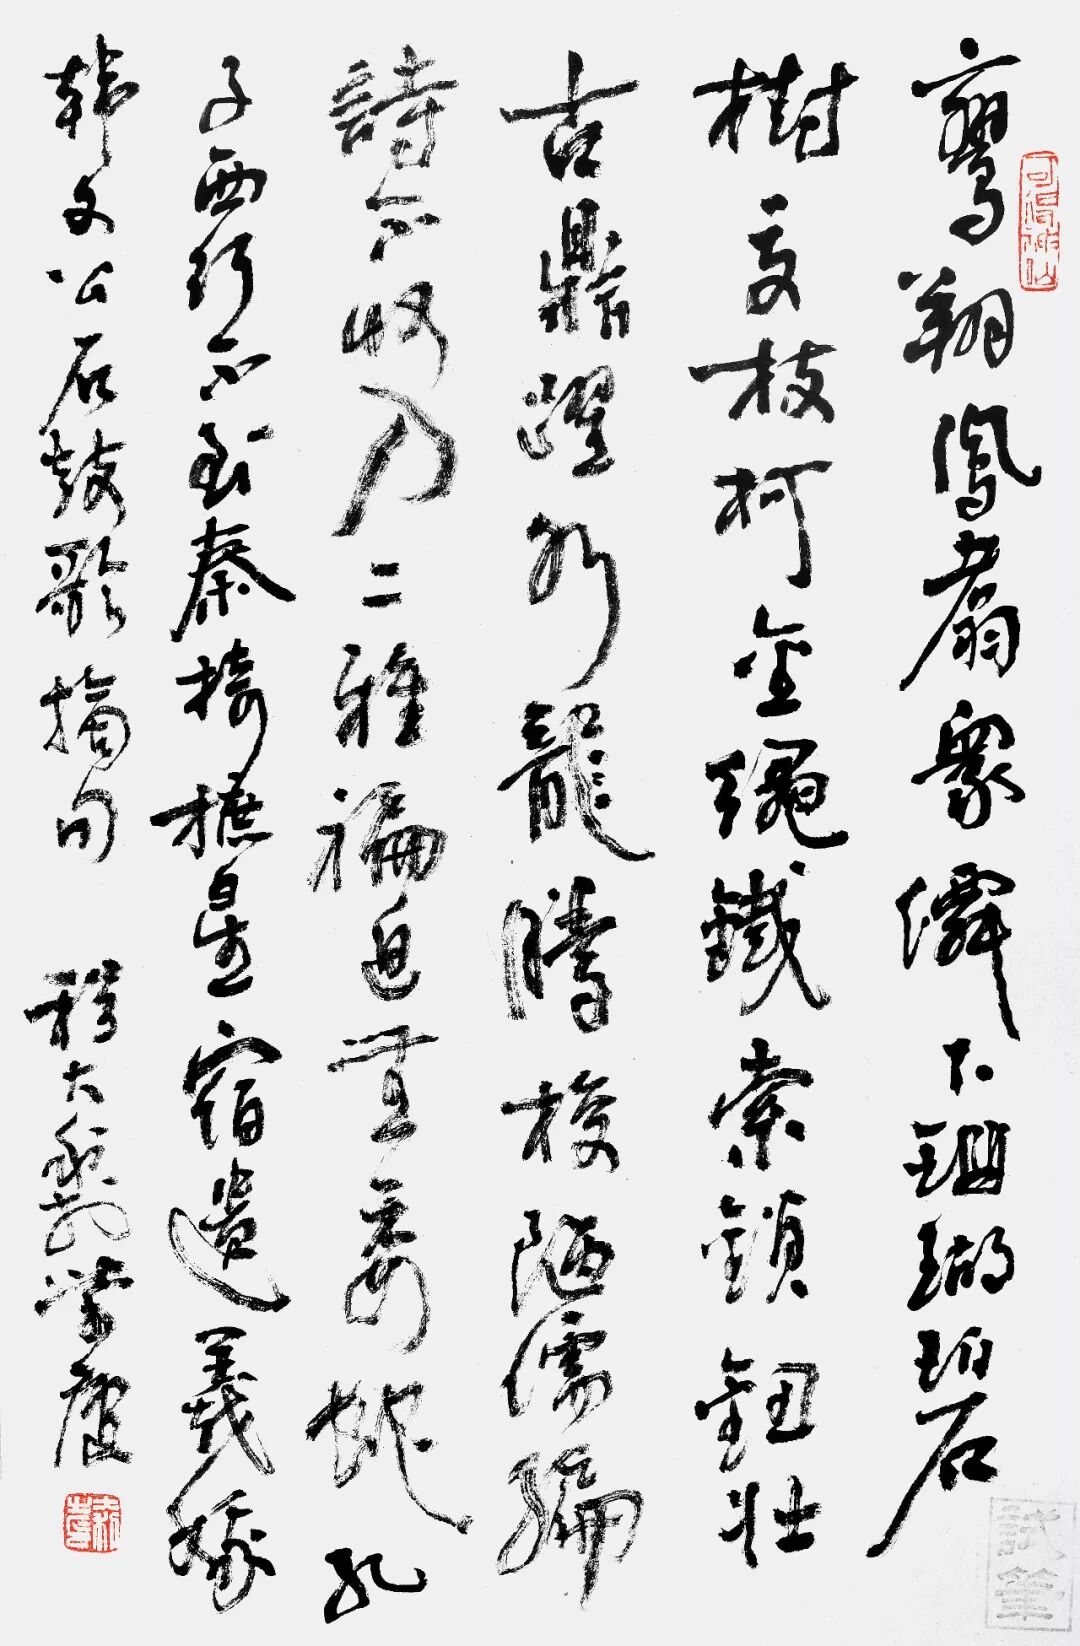 鸞翔鳳翥衆僊下珊瑚碧
樹交枝柯金繩鐵索鎖鈕壯
古鼎躍水龍騰梭陋儒編
詩不收乃二雅褊迫無委蛇孔
子西行不到秦掎摭星宿遺羲娥
韓文公石鼓歌摘句
試筆